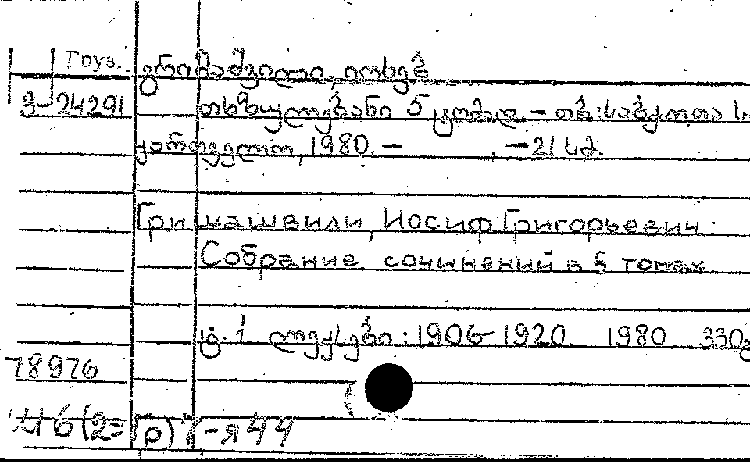 Груз.
გრიშაშვილი, იოსებ
გ-24291
თხზულებანი 5 ტომად – თბ.: საბჭოთა ს
ქართველო, 1980. – , – 21 სმ.
Гришашвили, Иосиф Григорьевич.
Собрание сочинений в 5 томах
ტ. 1 ლექსები: 1906-1920 1980 330გ
78976